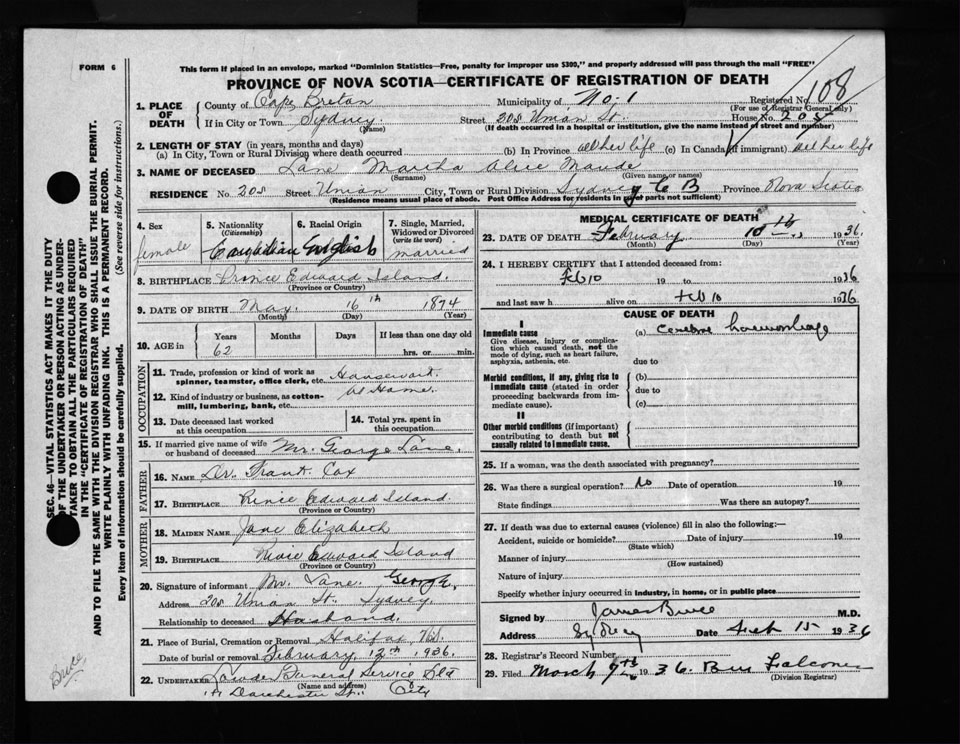 FORM 6
This form if placed in an envelope, marked "Dominion Statistics—Free, penalty for improper use $300," and properly addressed will pass through the mail "FREE"
PROVINCE OF NOVA SCOTIA—CERTIFICATE OF REGISTRATION OF DEATH
1. PLACE OF DEATH
County of Cape Breton Municipality of No. 1 Registered No. 108
(For use of Registrar General only)
If in City or Town Sydney Street 208 Union St. House No. 208
(Name) (If death occurred in a hospital or institution, give the name instead of street and number)
2. LENGTH OF STAY (in years, months and days)
(a) In City, Town or Rural Division where death occurred (b) In Province all her life (c) In Canada (if immigrant) all her life
3. NAME OF DECEASED Lane Martha Alice Maude
(Surname) (Given name or names)
RESIDENCE No. 208 Street Union City, Town or Rural Division Sydney C B Province Nova Scotia
(Residence means usual place of abode. Post Office Address for residents in rural parts not sufficient)
4. Sex
female
5. Nationality
(Citizenship)
Canadian
6. Racial Origin
English
7. Single, Married, Widowed or Divorced
(write the word)
married
8. BIRTHPLACE Prince Edward Island.
(Province or Country)
9. DATE OF BIRTH May. 16th 1874
(Month) (Day) (Year)
10. AGE in
Years Months Days If less than one day old
62 hrs. or min.
OCCUPATION
11. Trade, profession or kind of work as spinner, teamster, office clerk, etc.
12. Kind of industry or business, as cotton-mill, lumbering, bank, etc. At Home.
13. Date deceased last worked at this occupation
14. Total yrs. spent in this occupation
15. If married give name of wife or husband of deceased Mr. George Lane.
FATHER
16. NAME Dr. Frank Cox
17. BIRTHPLACE Prince Edward Island.
(Province or Country)
MOTHER
18. MAIDEN NAME Jane Elizabeth
19. BIRTHPLACE Prince Edward Island
(Province or Country)
20. Signature of informant Mr. Lane. George,
Address 208 Union St. Sydney.
Relationship to deceased Husband.
21. Place of Burial, Cremation or Removal Halifax N.S.
Date of burial or removal February, 12th, 1936.
22. UNDERTAKER Funeral Service Ltd
(Name and address)
Dorchester St. City
MEDICAL CERTIFICATE OF DEATH
23. DATE OF DEATH February 10th 1936.
(Month) (Day) (Year)
24. I HEREBY CERTIFY that I attended deceased from:
Feb 10 19 to 1936
and last saw h alive on Feb 10 1936
CAUSE OF DEATH
I
Immediate cause
Give disease, injury or complication which caused death, not the mode of dying, such as heart failure, asphyxia, asthenia, etc.
(a) haemorrhage
due to
Morbid conditions, if any, giving rise to immediate cause (stated in order proceeding backwards from immediate cause).
(b)
due to
(c)
II
Other morbid conditions (if important) contributing to death but not causally related to immediate cause.
25. If a woman, was the death associated with pregnancy?
26. Was there a surgical operation? No Date of operation 19
State findings Was there an autopsy?
27. If death was due to external causes (violence) fill in also the following:—
Accident, suicide or homicide? Date of injury 19
(State which)
Manner of injury
(How sustained)
Nature of injury
Specify whether injury occurred in industry, in home, or in public place
Signed by James Bruce M.D.
Address Sydney Date Feb 15 1936
28. Registrar's Record Number
29. Filed March 7th 1936. Falconer
(Division Registrar)
SEC. 46—VITAL STATISTICS ACT MAKES IT THE DUTY
OF THE UNDERTAKER OR PERSON ACTING AS UNDER-
TAKER TO OBTAIN ALL THE PARTICULARS REQUIRED
IN THE "CERTIFICATE OF REGISTRATION OF DEATH"
AND TO FILE THE SAME WITH THE DIVISION REGISTRAR WHO SHALL ISSUE THE BURIAL PERMIT.
WRITE PLAINLY WITH UNFADING INK. THIS IS A PERMANENT RECORD.
Every item of information should be carefully supplied. (See reverse side for instructions.)
Bruce